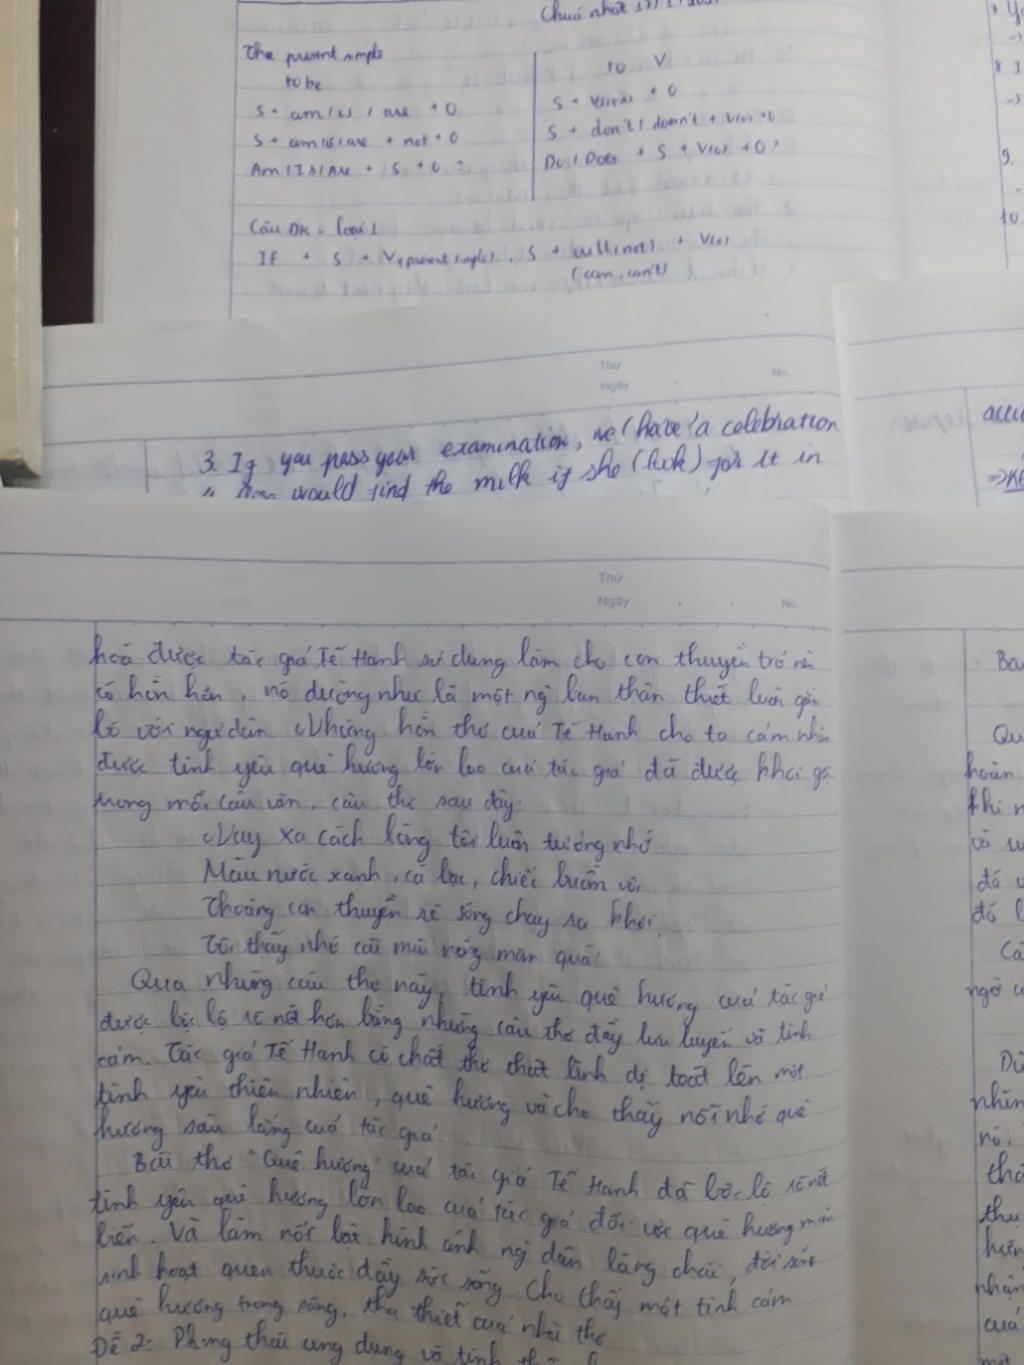 Chuá nhật 17/1/202
The present simple
to be
S + am / is / are + O
S + am/is/are + not + O
Am / Is / Are + S + O ?
to V
S + V(s/es) + O
S + don't / doesn't + V(o) + O
Do / Does + S + V(o) + O ?
Câu ĐK - loại 1
If + S + V(present simple), S + will(not) + V(o)
(can, can't)
9.
10
Thứ
Ngày
No
3. If you pass your examination, we (have) a celebration
would find the milk if she (look) for it in
Thứ
Ngày
No
hoá được tác giả Tế Hanh sử dụng làm cho con thuyền trở nên
có hồn hơn, nó dường như là một ng bạn thân thiết luôn gắn
bó với ngư dân. Những hồn thơ cuả Tế Hanh cho ta cảm nhận
được tình yêu quê hương lớn lao cuả tác giả đã được khơi gợi
trong mỗi câu văn, câu thơ sau đây:
Nay xa cách lòng tôi luôn tưởng nhớ
Màu nước xanh, cá bạc, chiếc buồm vôi
Thoáng con thuyền rẽ sóng chạy ra khơi,
Tôi thấy nhớ cái mùi nồng mặn quá!
Qua những câu thơ này, tình yêu quê hương cuả tác giả
được bộc lộ rõ nét hơn bằng những câu thơ đầy lưu luyến và tình
cảm. Tác giả Tế Hanh có chất thơ thật bình dị toát lên một
tình yêu thiên nhiên, quê hương và cho thấy nỗi nhớ quê
hương sâu lắng cuả tác giả
Bài thơ "Quê hương" cuả tác giả Tế Hanh đã bộc lộ rõ nét
tình yêu quê hương lớn lao cuả tác giả đối với quê hương miền
biển. Và làm nổi bật hình ảnh ng dân làng chài, đời sống
sinh hoạt quen thuộc đầy sức sống. Cho thấy một tình cảm
quê hương trong sáng, tha thiết cuả nhà thơ
Đề 2: Phong thái ung dung và tinh
Qu
hoàn
khi n
đó
Cả
ngờ
nhìn
nó.
thu
nhận
cuả
một